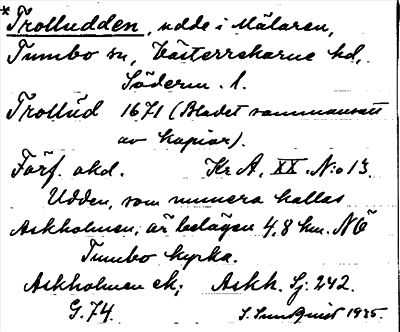 *Trolludden, udde i Mälaren,
Tumbo sn, Västerrekarne hd,
Söderm. l.
Trollud 1671 (Bladet sammansatt
av kopior).
Förf. okd. Kr A, XX. N:o 13.
Udden, som numera kallas
Askholmen, är belägen 4,8 km. NÖ
Tumbo kyrka.
Askholmen ek; Askh. Sj. 242.
G. 74. S. Sundquist 1935.